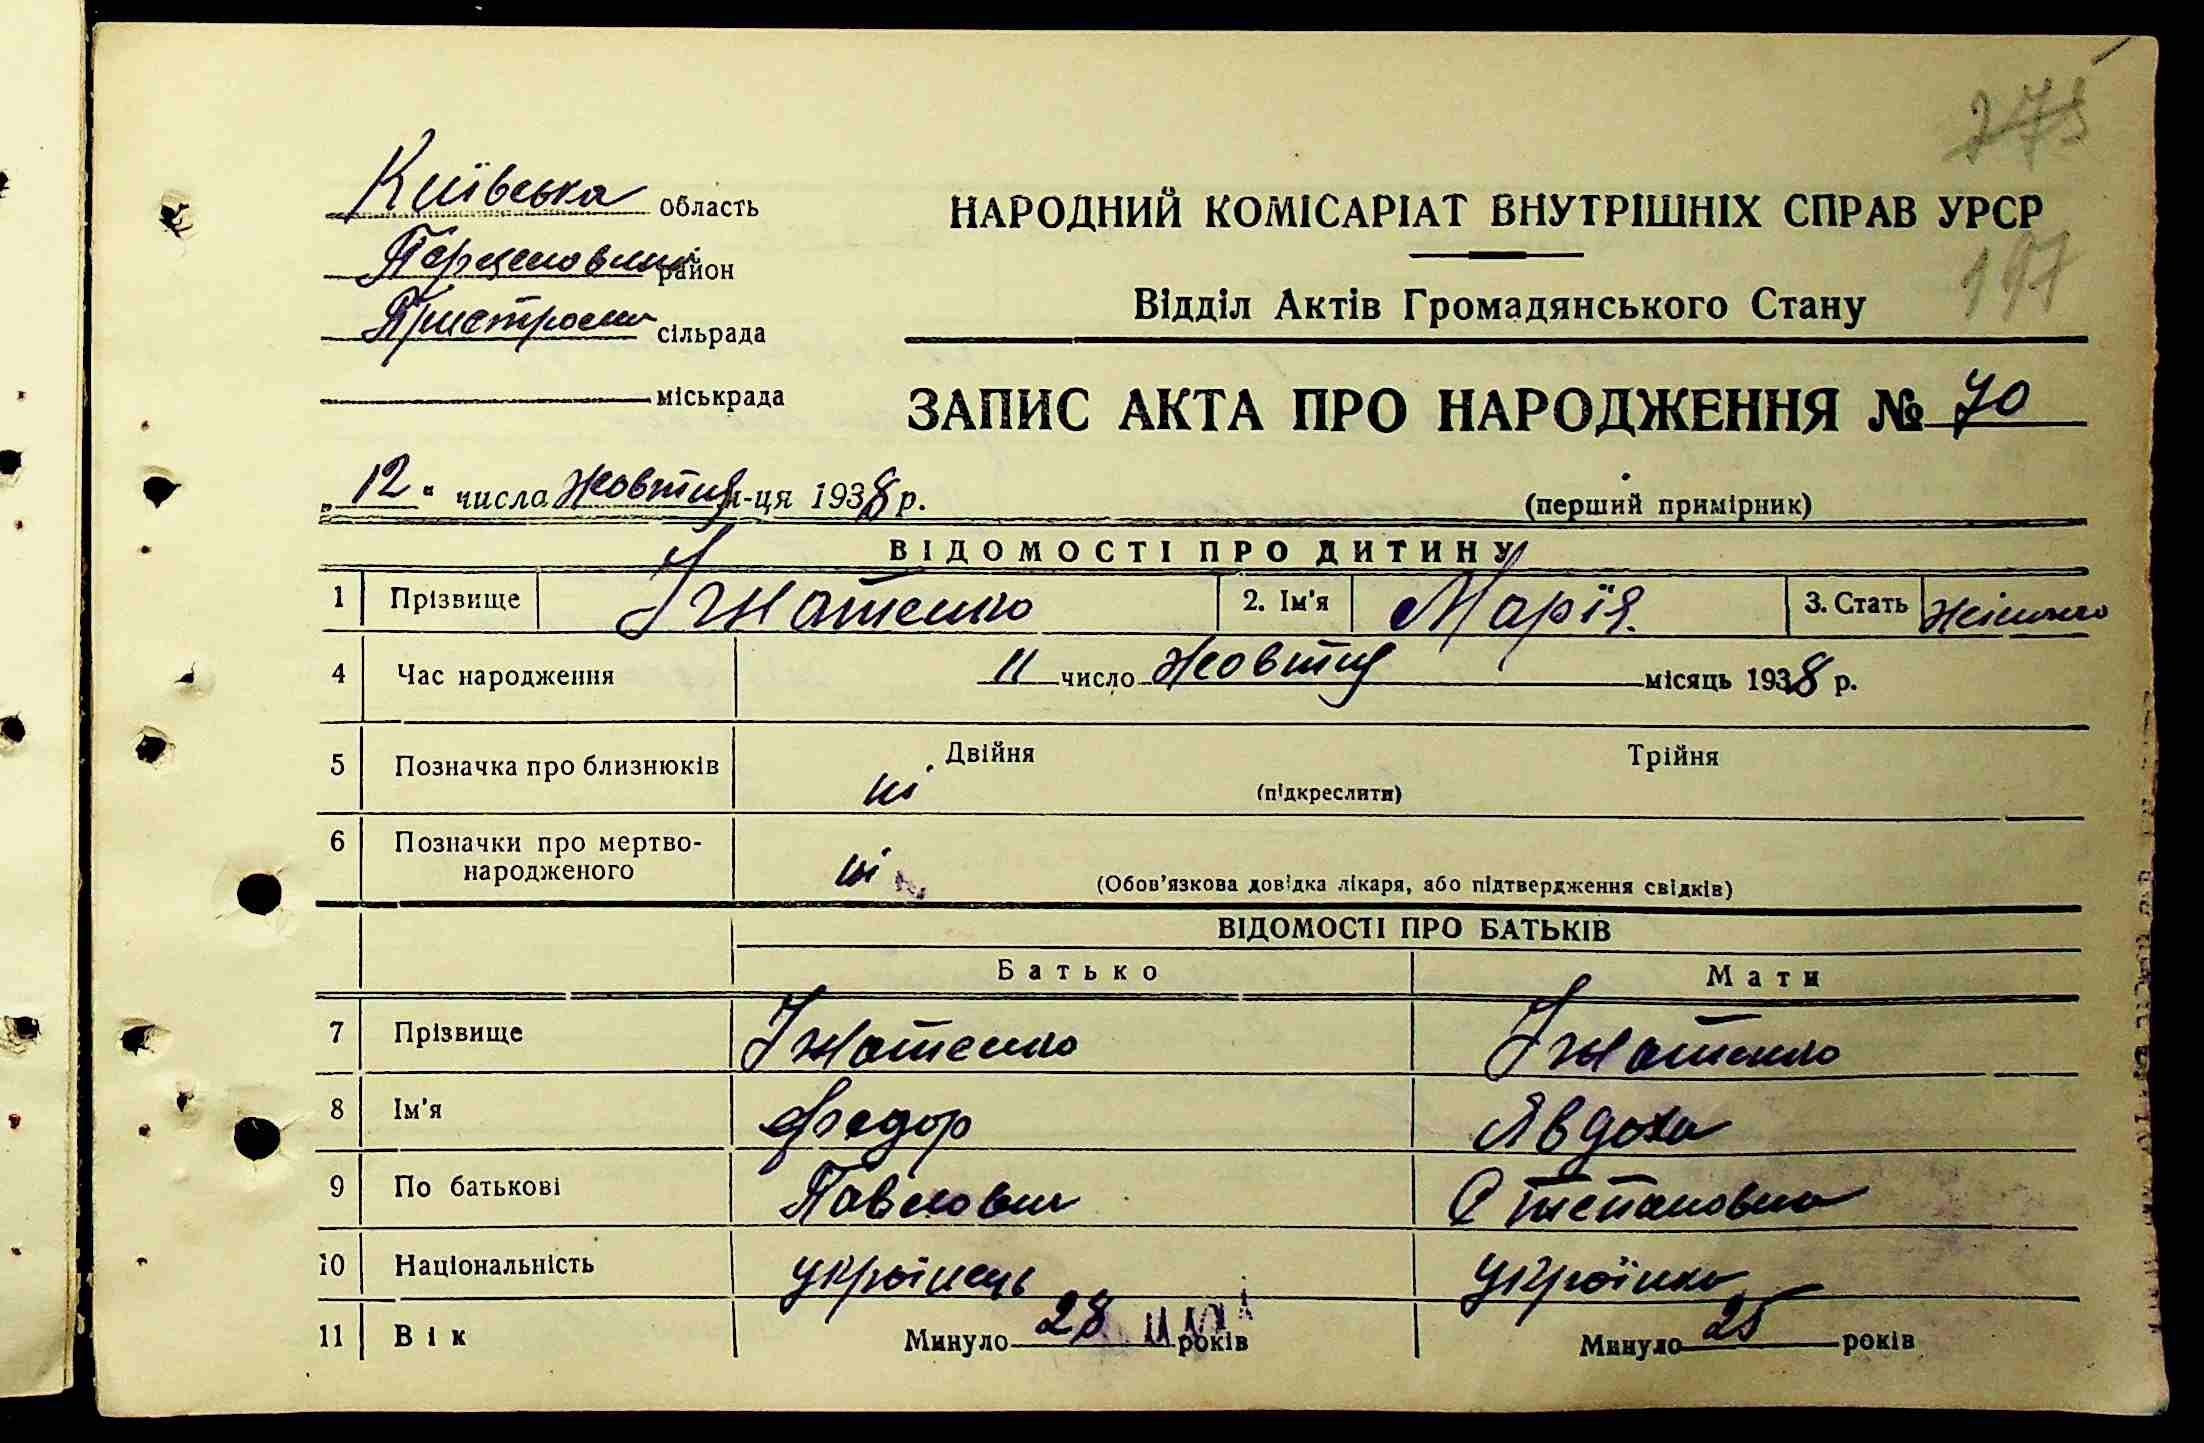 275
Київська область
район
Пристроми сільрада
міськрада
НАРОДНИЙ КОМІСАРІАТ ВНУТРІШНІХ СПРАВ УРСР
197
Відділ Актів Громадянського Стану
ЗАПИС АКТА ПРО НАРОДЖЕННЯ № 70
„ 12 " числа Жовтня м-ця 1938 р.
(перший примірник)
ВІДОМОСТІ ПРО ДИТИНУ
1 Прізвище Ігнатенко 2. Ім'я Марія. 3. Стать Жіноча
4 Час народження 11 число Жовтня місяць 1938 р.
5 Позначка про близнюків ні Двійня Трійня
(підкреслити)
6 Позначки про мертво-
народженого ні (Обов'язкова довідка лікаря, або підтвердження свідків)
ВІДОМОСТІ ПРО БАТЬКІВ
Батько Мати
7 Прізвище Ігнатенко Ігнатенко
8 Ім'я Федор Явдоха
9 По батькові Павлович Степановна
10 Національність українець українка
11 Вік Минуло 28 років Минуло 25 років